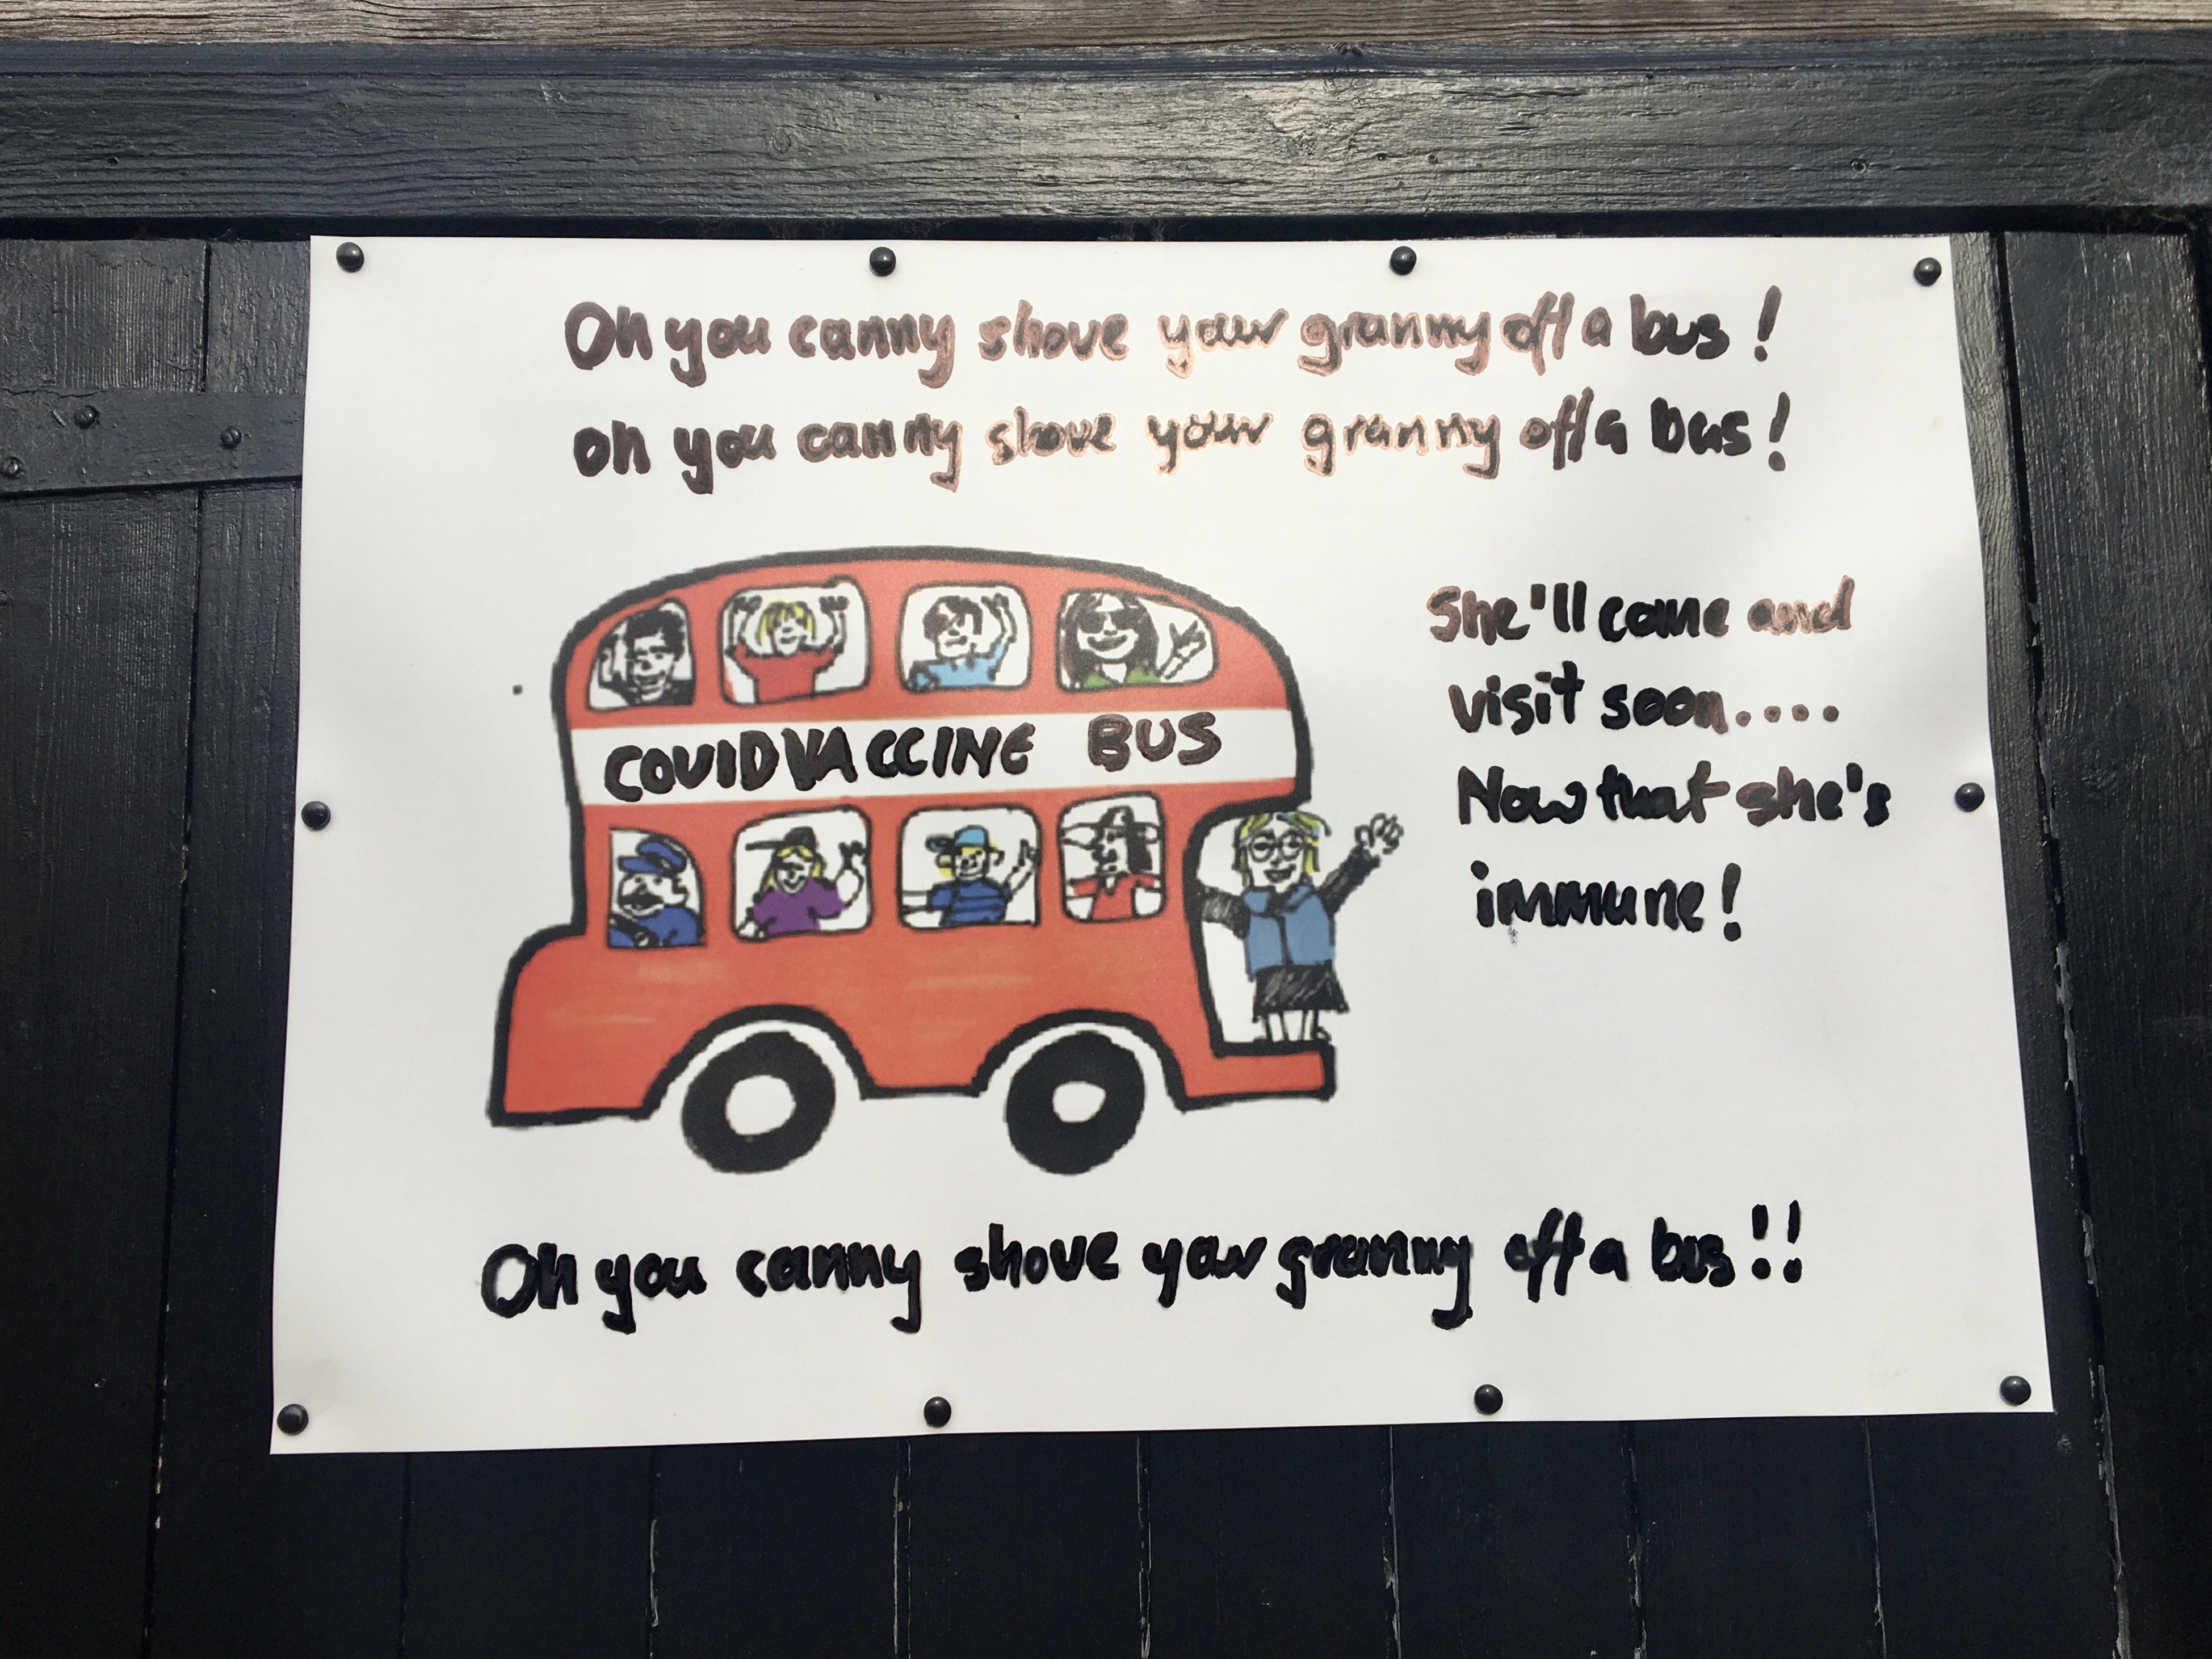 Oh you canny shove your granny off a bus!
oh you canny shove your granny off a bus!
She'll come and
visit soon....
Now that she's
immune!
COVID VACCINE BUS
Oh you canny shove your granny off a bus!!